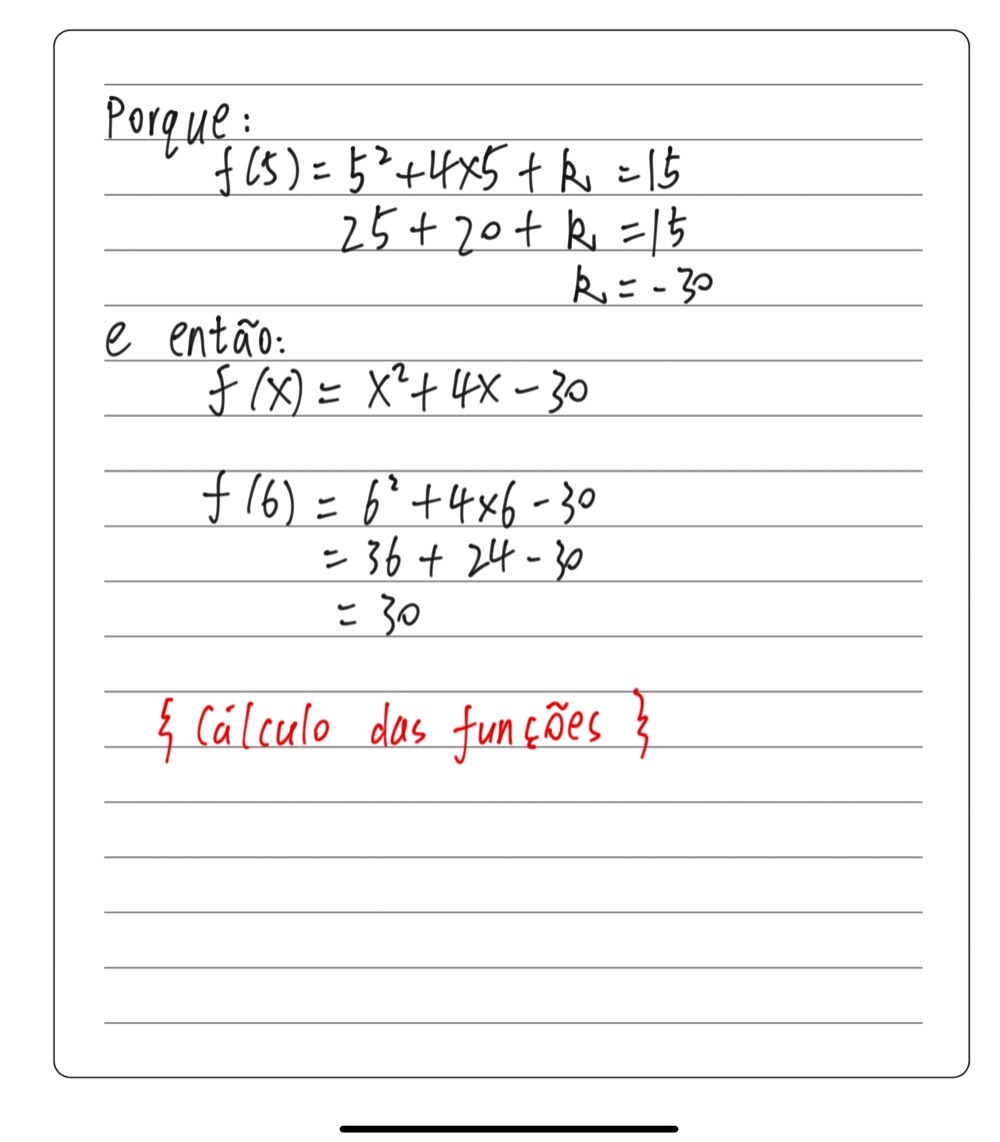 Porque:
f(5) = 5² + 4×5 + k = 15
25 + 20 + k = 15
k = -30
e então:
f(x) = x² + 4x - 30
f(6) = 6² + 4×6 - 30
= 36 + 24 - 30
= 30
{ Cálculo das funções }